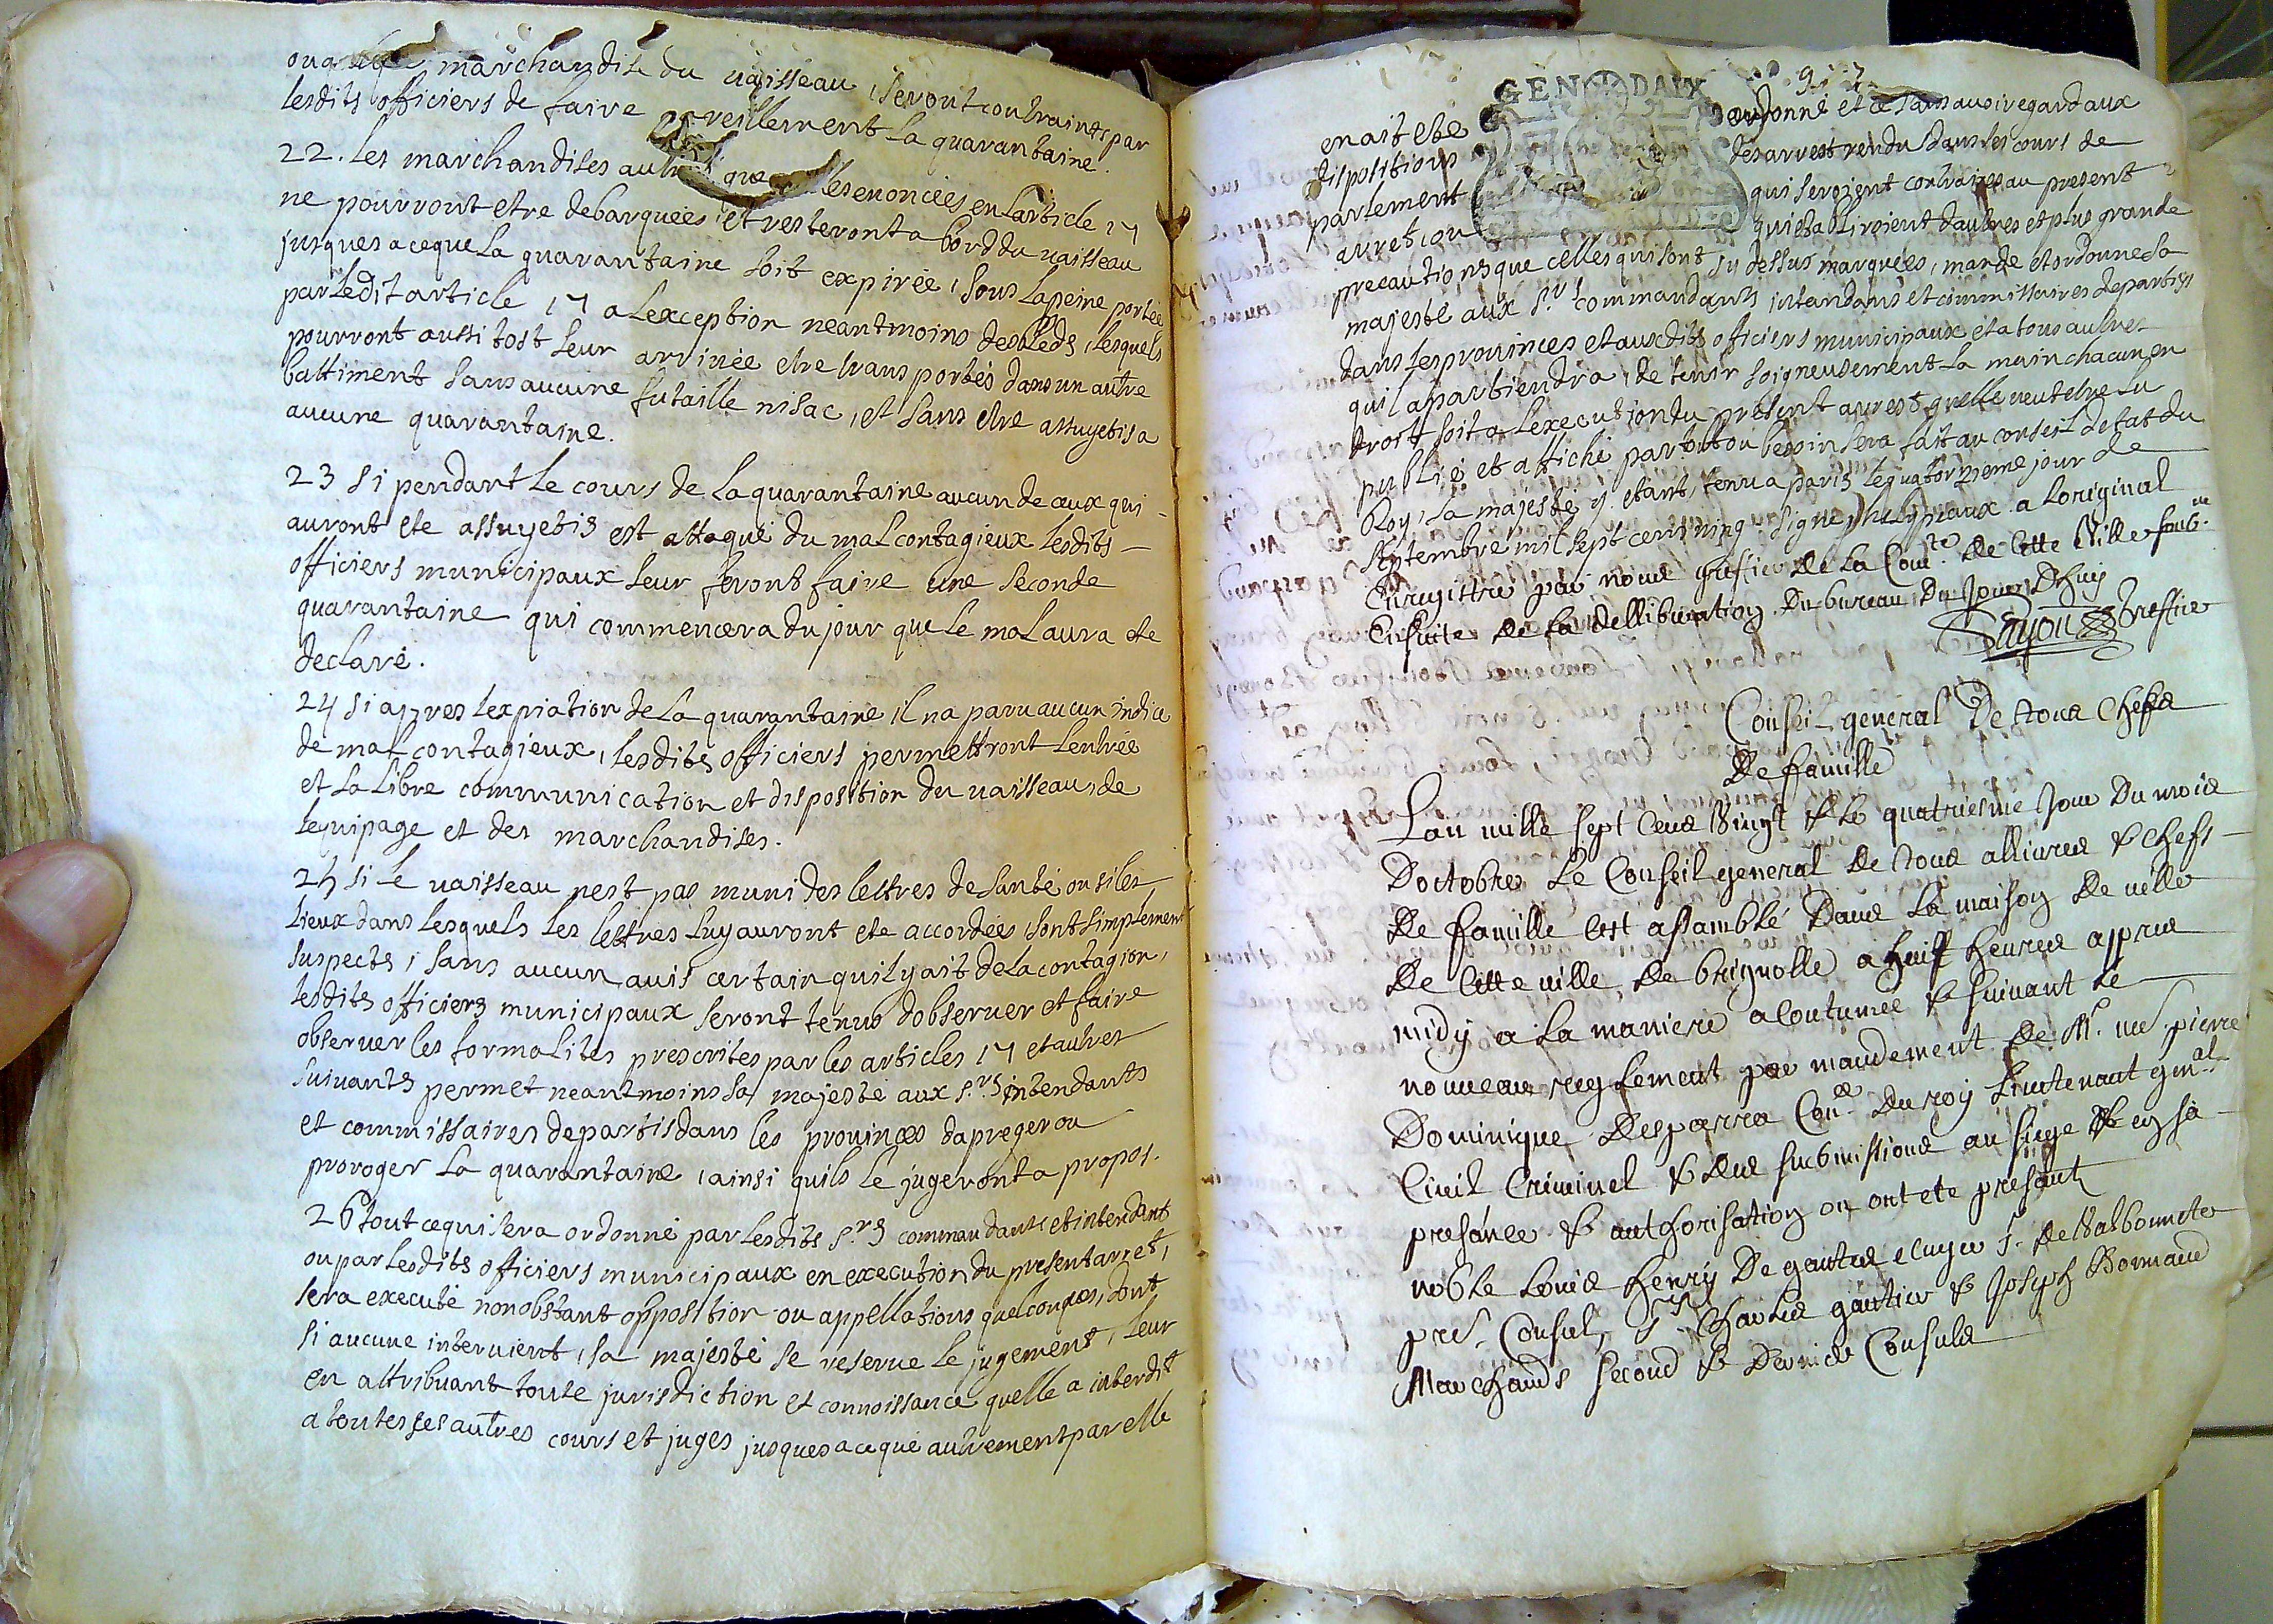 marchandise du vaisseau, seront contraints par
lesdits officiers de faire pareillement la quarantaine.
22. les marchandises autres que celles enoncées en larticle 17
ne pourront etre debarquées et resteront a bord du vaisseau
jusques a ceque la quarantaine soit expirée, sous la peine portée
par ledit article 17 a lexception neantmoins des bleds, lesquels
pourront aussi tost leur arrivée etre transportés dans un autre
battiment sans aucune futaille ni sac, et sans etre assujetis a
aucune quarantaine.
23 si pendant le cours de la quarantaine aucun de ceux qui
auront ete assujetis est attaqué du mal contagieux lesdits
officiers municipaux leur feront faire une seconde
quarantaine qui commencera du jour que le mal aura ete
declaré.
24 si apres lexpiation de la quarantaine il na paru aucun indice
de mal contagieux, lesdits officiers permettront lentrée
et la libre communication et disposition du vaisseau, de
lequipage et des marchandises.
25 si le vaisseau nest pas muni des lettres de santé ou si les
lieux dans lesquels les lettres luy auront ete accordées, sont simplement
suspects, sans aucun avis certain quil y ait de la contagion,
lesdits officiers municipaux seront tenus dobserver et faire
observer les formalites prescrites par les articles 17 et autres
suivants permet neantmoins sa majesté aux s.rs intendants
et commissaires departis dans les provinces dapreger ou
proroger la quarantaine, ainsi quils le jugeront a propos.
26 tout cequi sera ordonné par lesdits s.rs commandants et intendents
ou par lesdits officiers municipaux en execution du present arret,
sera executé nonobstant opposition ou appellations quelconques, dont
si aucune intervient, sa majesté se reserve le jugement, leur
en attribuant toute jurisdiction et connoissance quelle a interdit
a toutes ses autres cours et juges jusques a ce que autrement par elle
GEN DAIX
en ait ete ordonné et ce sans avoir egard aux
dispositions des arrest rendu dans les cours de
parlement qui seroient contraires au present
arret ou qui etabliroient dautres et plus grande
precautions que celles qui sont sy dessus marquées, mande et ordonne sa
majesté aux s.rs commandants intandans et commissaires departis
dans les provinces et auxdits officiers municipaux et a tous autres
quil apartiendra, de tenir soigneusement la main chacun en
droit soit a lexecution du présent arrest quelle veut etre lu
publié et affiché partout ou besoin sera fait au conseil detat du
Roy, sa majesté y etant, tenu a paris le quatorzieme jour de
septembre mil sept cens vingt signé phelypeaux a loriginal
Enregistré par nous greffier de la Com.té de cette ville soub.ne
Ensuite de la delliberation du bureau du jourdhuy
Greffier
Conseil general De tous Chefs
De famille
Lan mille sept Cens Vingt & le quatriesme Jour Du mois
Doctobre Le Conseil general De tous allivres & chefs
De famille sest assamblé Dans la maison De ville
De cette ville De brignolle a huit heures appres
midy a la maniere acoutumee & suivant le
nouveau reglement par mandement de M.r me pierre
Dominique Desparra Con.er Du roy Lieutenant gen.al
Civil Criminel & des submissions au siege & en sa
presance & authorisation ou ont ete presants
noble Louis henry De gautier ecuyer s.r de Valbonnete
pre.r Consul, s.rs Charles gautier & Joseph
Marchands second & Dernier Consuls